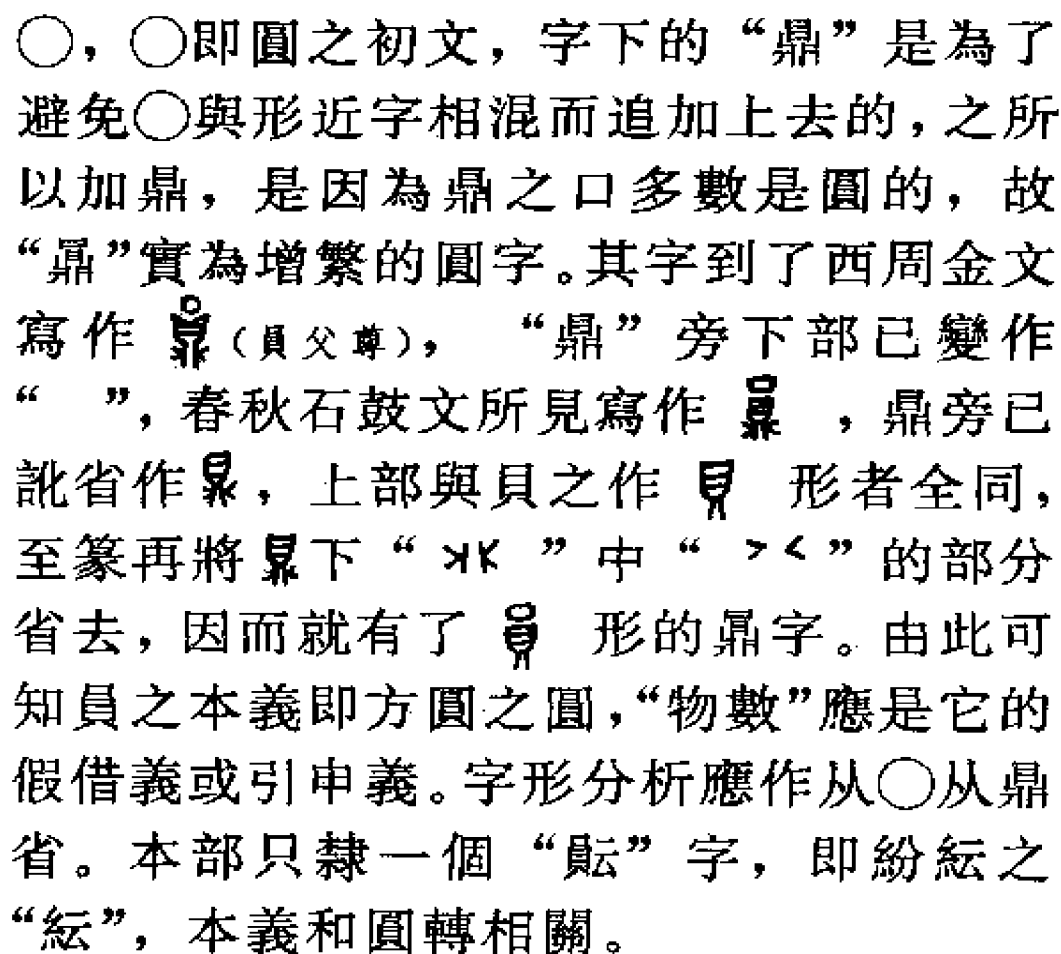 〇，〇即圓之初文，字下的“鼎”是為了
避免〇與形近字相混而追加上去的，之所
以加鼎，是因為鼎之口多數是圓的，故
“鼎”實為增繁的圓字。其字到了西周金文
寫作（員父尊），“鼎”旁下部已變作
“　”，春秋石鼓文所見寫作，鼎旁已
訛省作，上部與貝之作形者全同，
至篆再將下“”中“”的部分
省去，因而就有了形的鼏字。由此可
知員之本義即方圓之圓，“物數”應是它的
假借義或引申義。字形分析應作从〇从鼎
省。本部只隸一個“䰟”字，即紛紜之
“紜”，本義和圓轉相關。